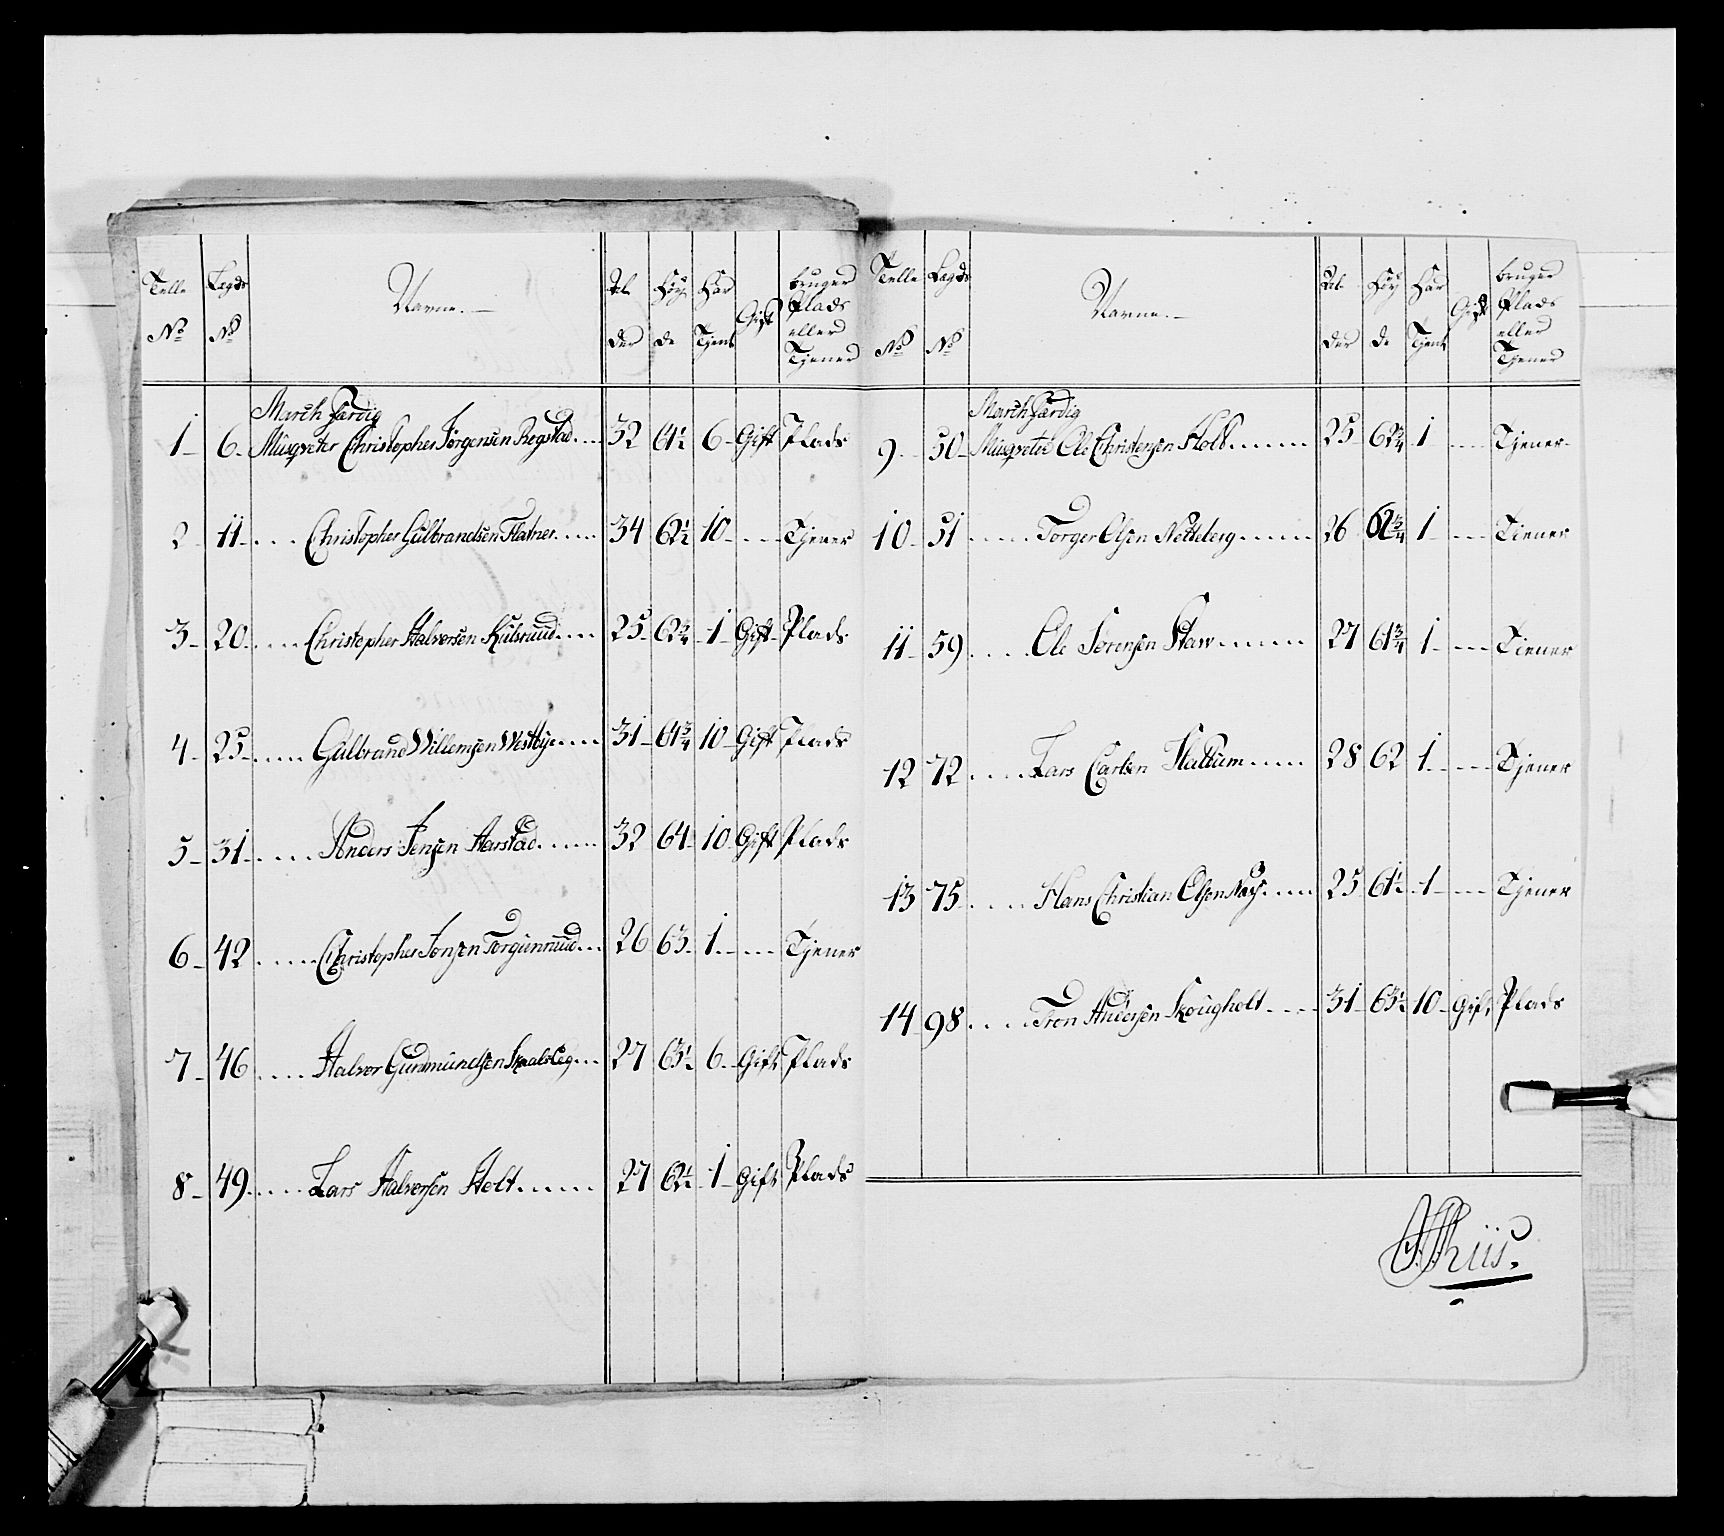 Telle Lægds Navne. Al- Höy- Har Gift bruger
No No der de Tjent Plads
eller
Tjener
March færdig
1 6 Musqveter Christopher Jörgensen Rogstad 32 61½ 6 Gift Plads
2 11 Christopher Gulbrandsen Flatner 34 62½ 10 Tjener
3 20 Christopher Halversen Kulsrud 25 62¾ 1 Gift Plads
4 25 Gulbrand Willemsen Westbye 31 61¾ 10 Gift Plads
5 31 Anders Jensen Harstad 32 64 10 Gift Plads
6 42 Christopher Jonsen Torgunrud 26 63 1 Tjener
7 46 Halvor Gudmundsen 27 63½ 6 Gift Plads
8 49 Lars Halversen Holt 27 62½ 1 Gift Plads
Telle Lægds Navne. Al- Höy- Har Gift bruger
No No der de Tjent Plads
eller
Tjener
March færdig
9 50 Musqveter Ole Christensen 25 62¾ 1 Tjener
10 51 Torger Olsen Netteberg 26 62¾ 1 Tiener
11 59 Ole Sörensen 27 61¾ 1 Tiener
12 72 Lars Carlsen Hattum 28 62 1 Tjener
13 75 Hans Christian Olsen 25 61½ 1 Tjener
14 98 Tron Andersen Skougholt 31 63½ 10 Gift Plads
Thiis.